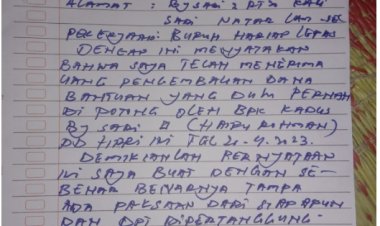 ALAMAT : BJ SARI 2 RT2 KALI
SARI NATAR LAM-SEL
PEKERJAAN: BURUH HARIAN LEPAS
DENGAN INI MENYATAKAN
BAHWA SAJA TELAH MENERIMA
UANG PENGEMBALIAN DANA
BANTUAN YANG DULU PERNAH
DI POTONG OLEH BPK KADUS
BJ SARI (HAIRU ROHMAN)
HARI INI TGL 20-4-2023.
DEMIKIANLAH PERNYATAAN
INI SAJA BUAT DENGAN SE-
BENAR BENARNYA TAMPA
ADA PAKSAAN DARI SIAPAPUN
DAN DPT DIPERTANGGUNG-